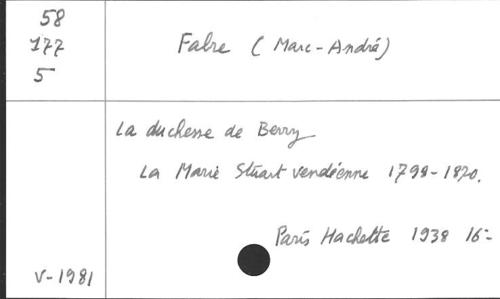 58
177
5
Fabre (Marc-André)
La duchesse de Berry
La Marie Stuart vendéenne 1798-1870.
Paris Hachette 1938 16=
V-1981